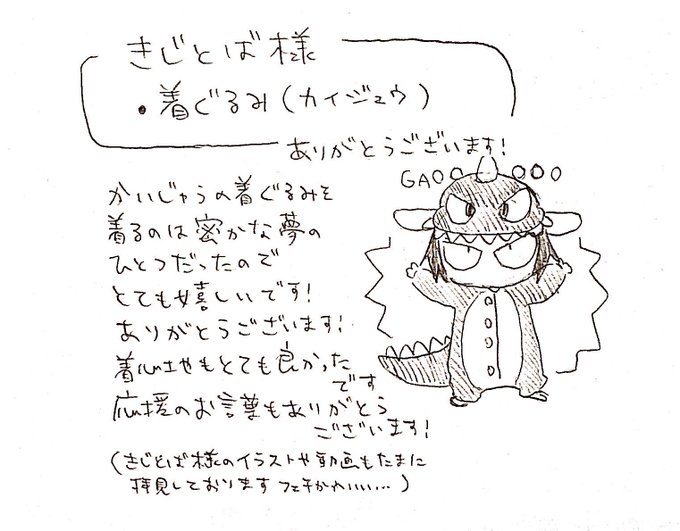 きじとば様
・着ぐるみ(カイジュウ)
ありがとうございます!
GAOOOOOOO
かいじゅうの着ぐるみを
着るのは密かな夢の
ひとつだったので
とても嬉しいです!
ありがとうございます!
着心地もとても良かった
です
応援のお言葉もありがとう
ございます!
(きじとば様のイラストや動画もたまに
拝見しております フェチかわいい…)